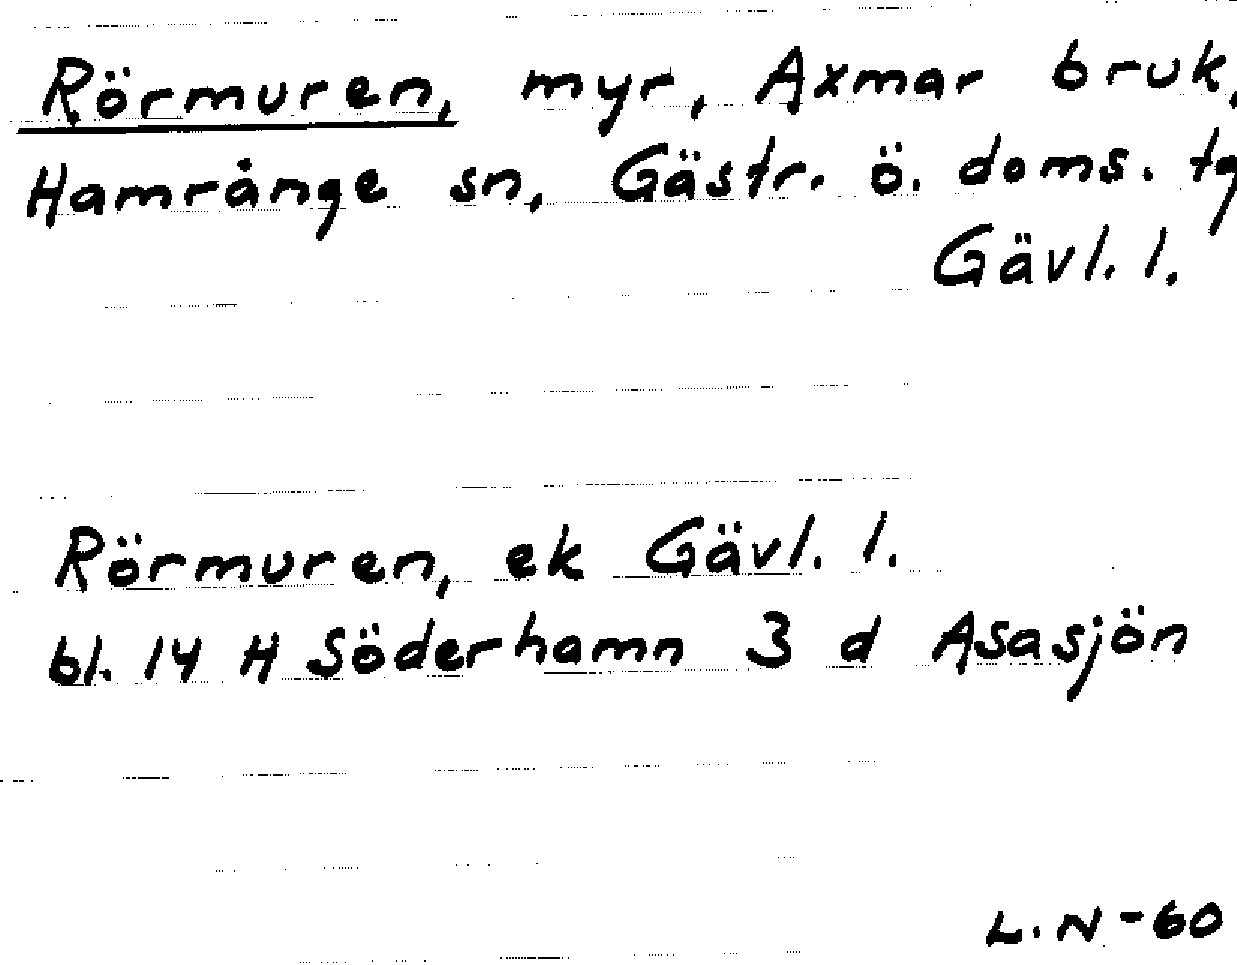 Rörmuren, myr, Axmar bruk,
Hamrånge sn, Gästr. ö. doms. tg
Gävl. l.
Rörmuren, ek Gävl. l.
bl. 14 H Söderhamn 3 d Asasjön
L.N-60